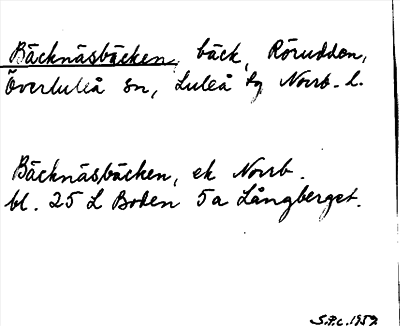 Bäcknäsbäcken, bäck, Rörudden,
Överluleå sn, Luleå tg Norrb. l.
Bäcknäsbäcken, ek Norrb.
bl. 25 L Boden 5a Långberget.
S.P.C. 1959